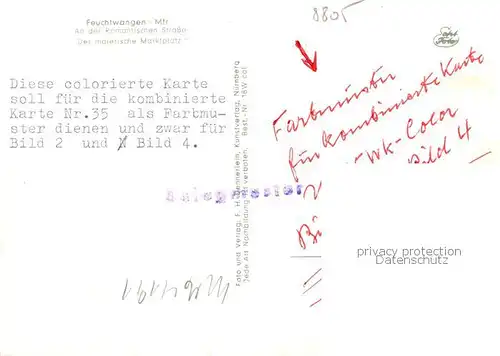 Feuchtwangen - Mfr
An der Romantischen Straße
"Der malerische Marktplatz"
8805
Diese colorierte Karte
soll für die kombinierte
Karte Nr.35 als Farbmu-
ster dienen und zwar für
Bild 2 und Bild 4.
Foto und Verlag: F. H. Kunstverlag, Nürnberg
Jede Art Nachbildung ist verboten. Best.-Nr. 18W col
Farbmuster
für kombinierte Karte
-WK-Color
Bild 4
privacy protection
Datenschutz